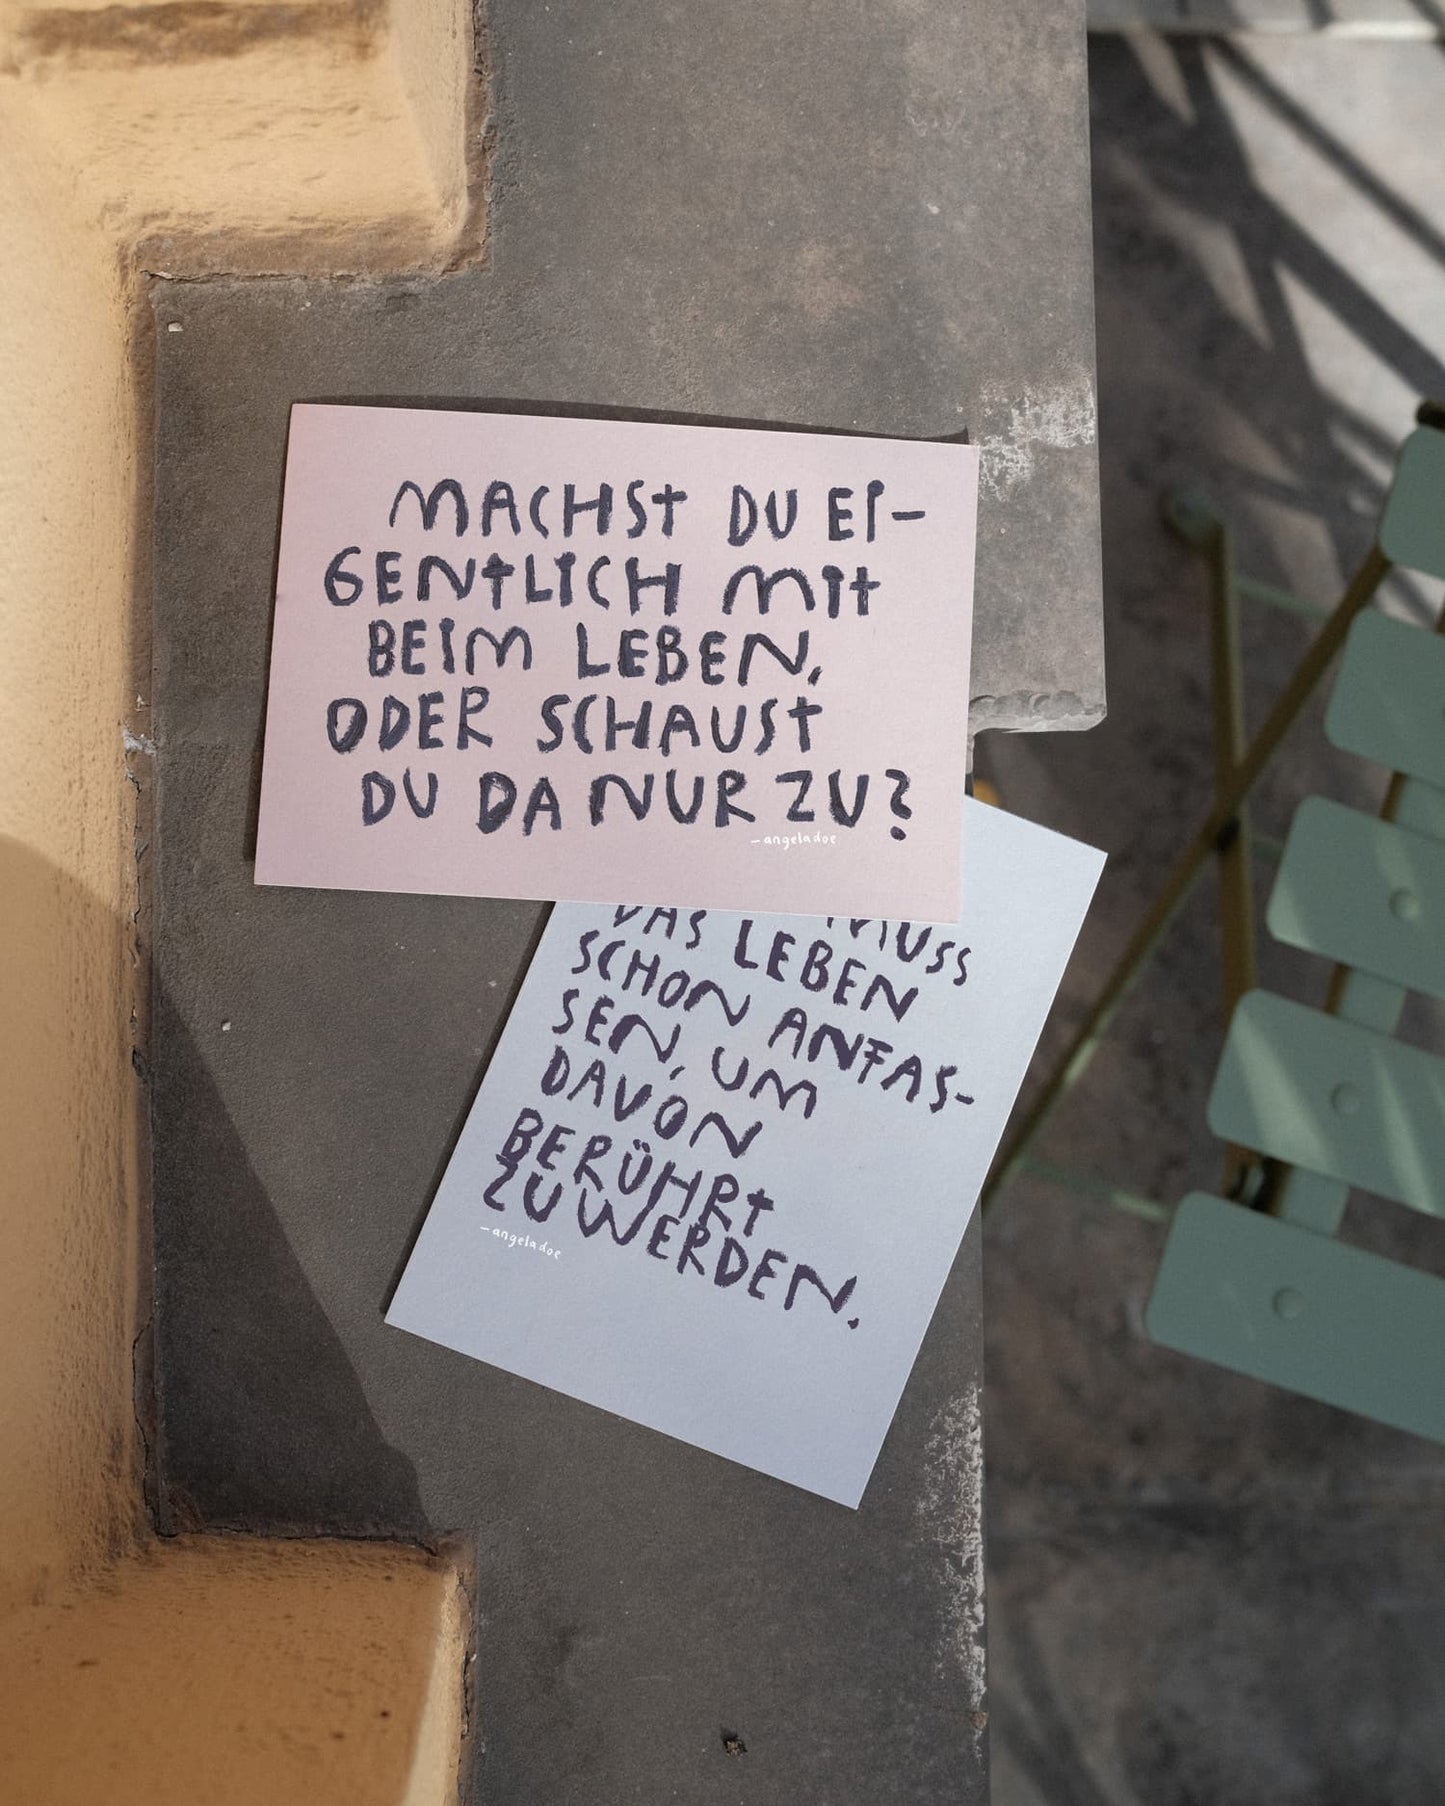 MACHST DU EI-
GENTLICH MIT
BEIM LEBEN,
ODER SCHAUST
DU DA NUR ZU?
– angela doe
MUSS
DAS LEBEN
SCHON ANFAS-
SEN, UM
DAVON
BERÜHRT
ZU WERDEN.
– angela doe